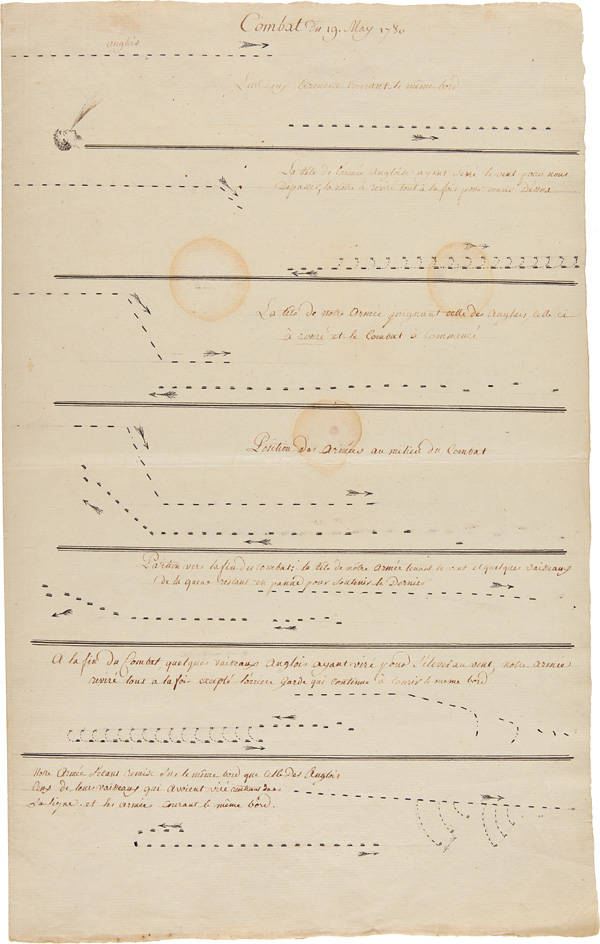 Combat du 19. May 1780
anglois
Les deux Armées Courant le même bord
La tête de l'armée Angloise ayant serré le vent pour nous
Depasser, la notre à reviré tout à la fois pour venir Dessus
La tête de notre Armée joignant celle des Anglois, celle ci
à reviré et le Combat à Commencé
Position des Armées au milieu du Combat
Position vers la fin du Combat; la tête de notre Armée tenant le vent et quelques vaisseaux
de la queue restant en panne pour soutenir le Dernier
A la fin du Combat quelques vaisseaux Anglois ayant viré pour s'élever au vent, notre armée
reviré tous a la fois excepté l'arriere Garde qui continue à Courir le même bord
Notre Armée s'étant remise sur le même bord que celle des Anglois
de leurs vaisseaux que avoient viré dans
La ligne. et les Armées Courant le même bord.